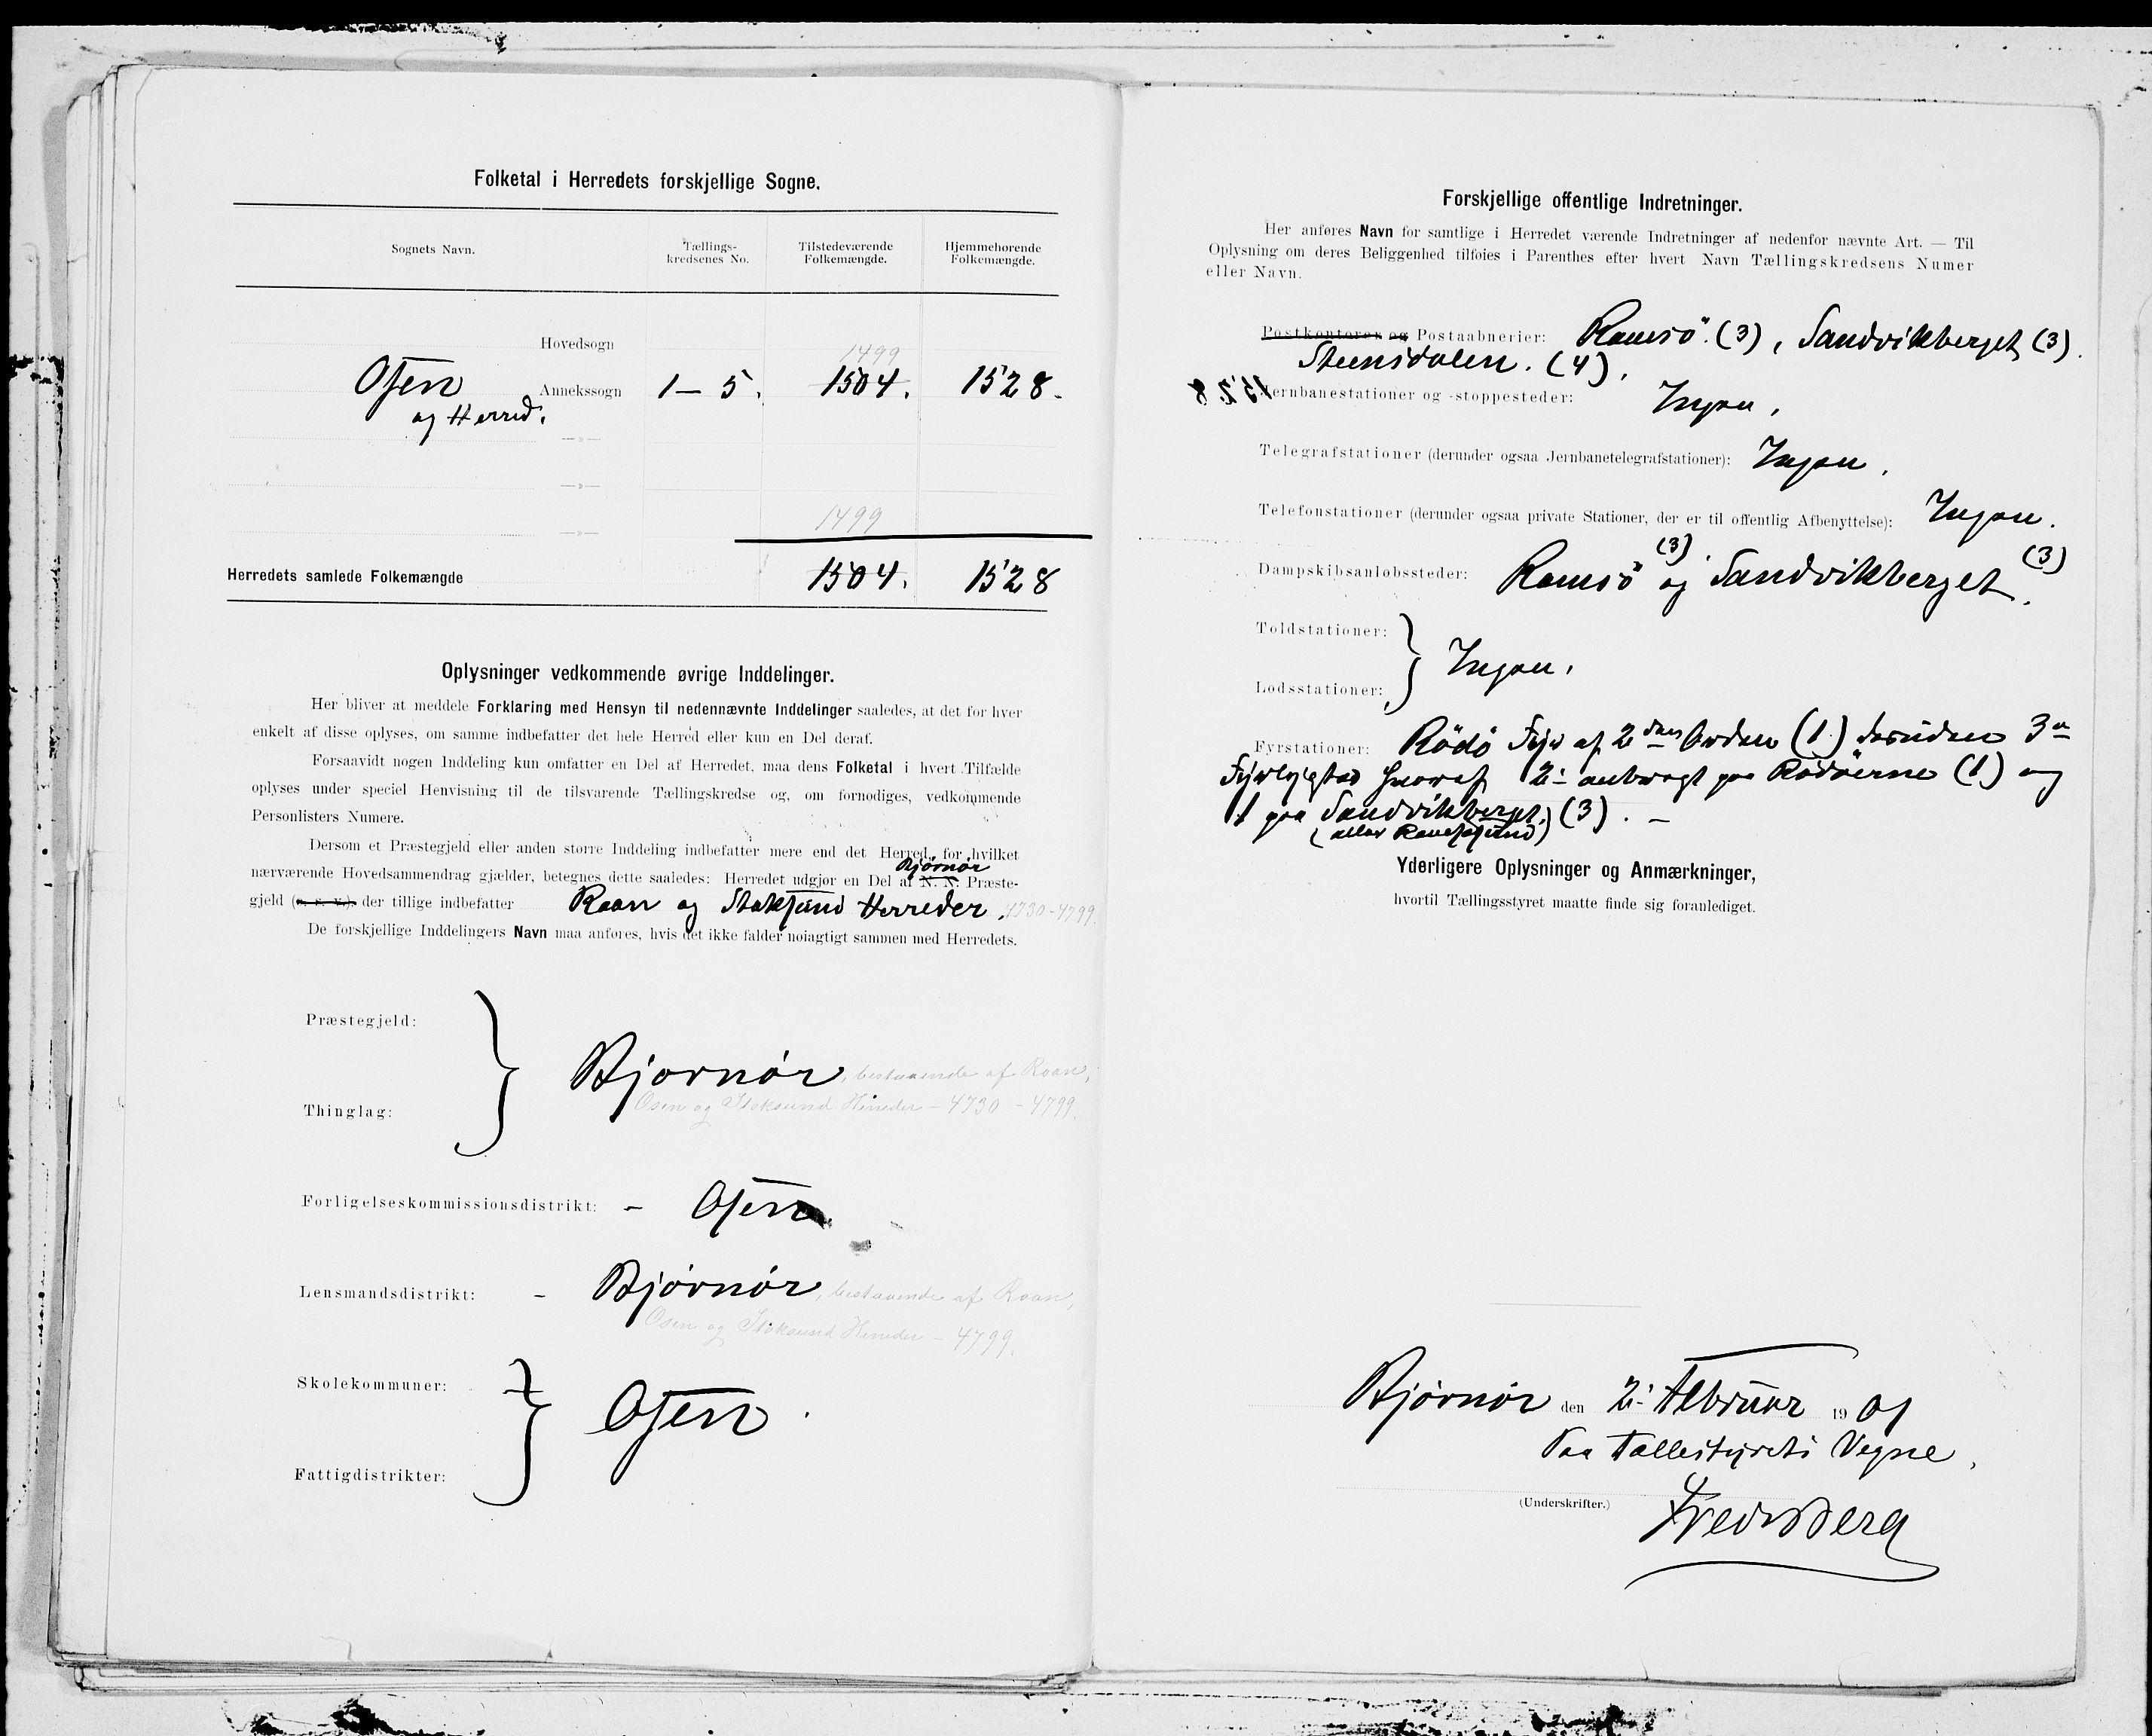 Folketal i Herredets forskjellige Sogne.
Sognets Navn. Tællings-kredsenes No. Tilstedeværende Folkemængde. Hjemmehørende Folkemængde.
Hovedsogn
1499
Osen Annekssogn 1–5. 1504. 1528.
og Herred.
—»—
—»—
1499
—»—
Herredets samlede Folkemængde 1504. 1528
Oplysninger vedkommende øvrige Inddelinger.
Her bliver at meddele Forklaring med Hensyn til nedennævnte Inddelinger saaledes, at det for hver
enkelt af disse oplyses, om samme indbefatter det hele Herred eller kun en Del deraf.
Forsaavidt nogen Inddeling kun omfatter en Del af Herredet, maa dens Folketal i hvert Tilfælde
oplyses under speciel Henvisning til de tilsvarende Tællingskredse og, om fornødiges, vedkommende
Personlisters Numere.
Dersom et Præstegjeld eller anden større Inddeling indbefatter mere end det Herred, for hvilket
Bjørnør
nærværende Hovedsammendrag gjælder, betegnes dette saaledes: Herredet udgjør en Del af N. N. Præste-
gjeld (o. s. v.), der tillige indbefatter Roan og Stoksund Herreder. 4730-4799.
De forskjellige Inddelingers Navn maa anføres, hvis det ikke falder nøiagtigt sammen med Herredets.
Præstegjeld:
Bjørnør, bestaaende af Roan,
Osen og Stoksund Herreder – 4730 – 4799.
Thinglag:
Forligelseskommissionsdistrikt: – Osen
Lensmandsdistrikt: – Bjørnør, bestaaende af Roan,
Osen og Stoksund Herreder – 4799.
Skolekommuner:
Osen.
Fattigdistrikter:
Forskjellige offentlige Indretninger.
Her anføres Navn for samtlige i Herredet værende Indretninger af nedenfor nævnte Art. — Til
Oplysning om deres Beliggenhed tilføies i Parenthes efter hvert Navn Tællingskredsens Numer
eller Navn.
Postkontorer og Postaabnerier: Ramsö. (3), Sandvikberget (3).
Steensdalen. (4).
Jernbanestationer og -stoppesteder: Ingen.
Telegrafstationer (derunder ogsaa Jernbanetelegrafstationer): Ingen.
Telefonstationer (derunder ogsaa private Stationer, der er til offentlig Afbenyttelse): Ingen.
Dampskibsanløbssteder: Ramsö (3) og Sandvikberget (3).
Toldstationer:
Ingen.
Lodsstationer:
Fyrstationer: Rödö Fyr af 2den Orden (1) desuden 3
Fyrlygter hvoraf 2 anbragt paa Rödöerne (1) og
1 paa Sandvikberget. (3). –
(eller Ramsösund)
Yderligere Oplysninger og Anmærkninger,
hvortil Tællingsstyret maatte finde sig foranlediget.
Bjørnør den 2. Februar 1901
Paa Tællestyrets Vegne,
(Underskrifter.) Fredr Berg